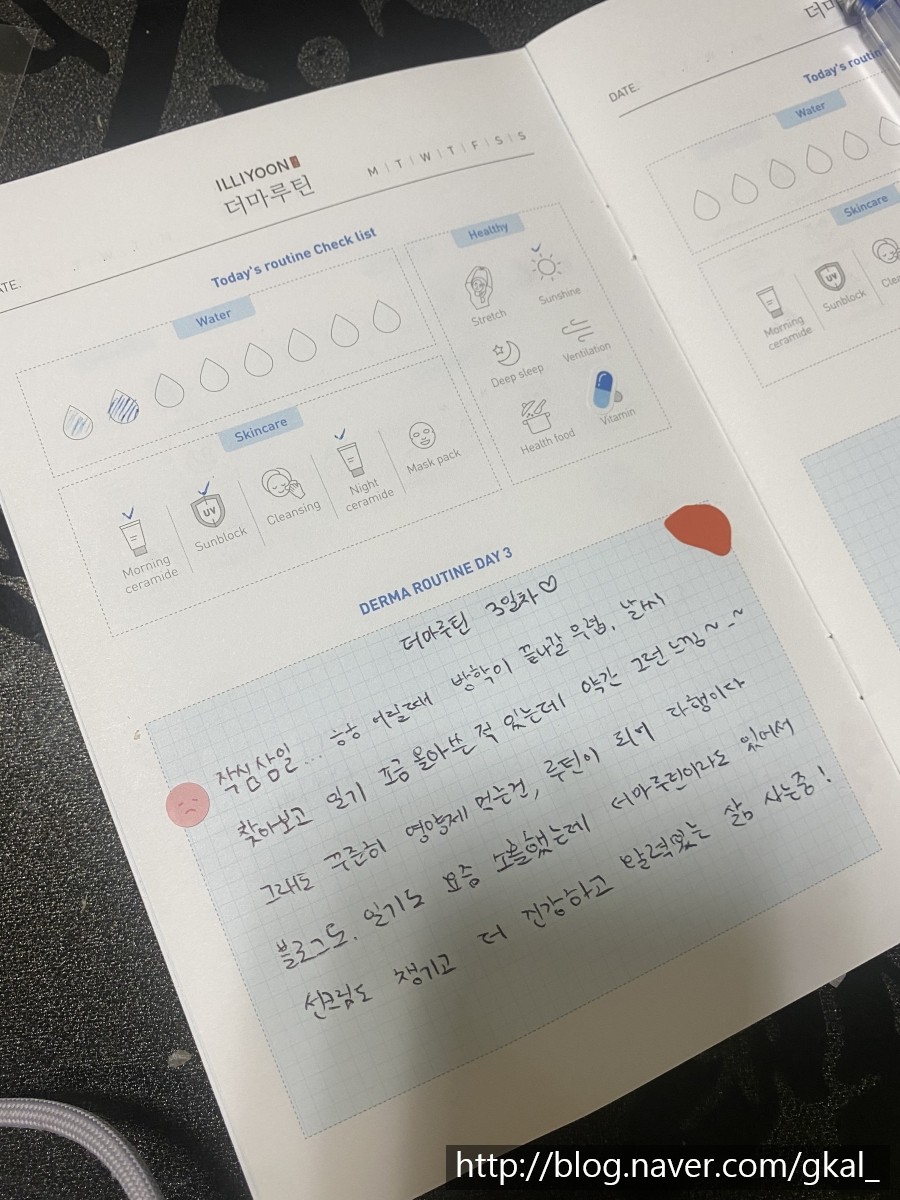 ILLIYOON
더마루틴
M | T | W | T | F | S | S
ATE.
Today's routine Check list
Water
Healthy
Stretch
Sunshine
Deep sleep
Ventilation
Health food
Vitamin
Skincare
Morning ceramide
Sunblock
UV
Cleansing
Night ceramide
Mask pack
DERMA ROUTINE DAY 3
더마루틴 3일차♡
작심삼일... 흐항 어릴때 방학이 끝나갈 무렵, 날씨
찾아보고 일기 조금 몰아쓴 적 있는데 약간 그런 느낌~-~
그래도 꾸준히 영양제 먹는건, 루틴이 되어 다행이다
블로그도, 일기도 요즘 소홀했는데 더마루틴이라도 있어서
선크림도 챙기고 더 건강하고 활력있는 삶 사는중!
더마
DATE.
Today's routin
Water
Skincare
Morning ceramide
UV
Sunblock
Clea
http://blog.naver.com/gkal_